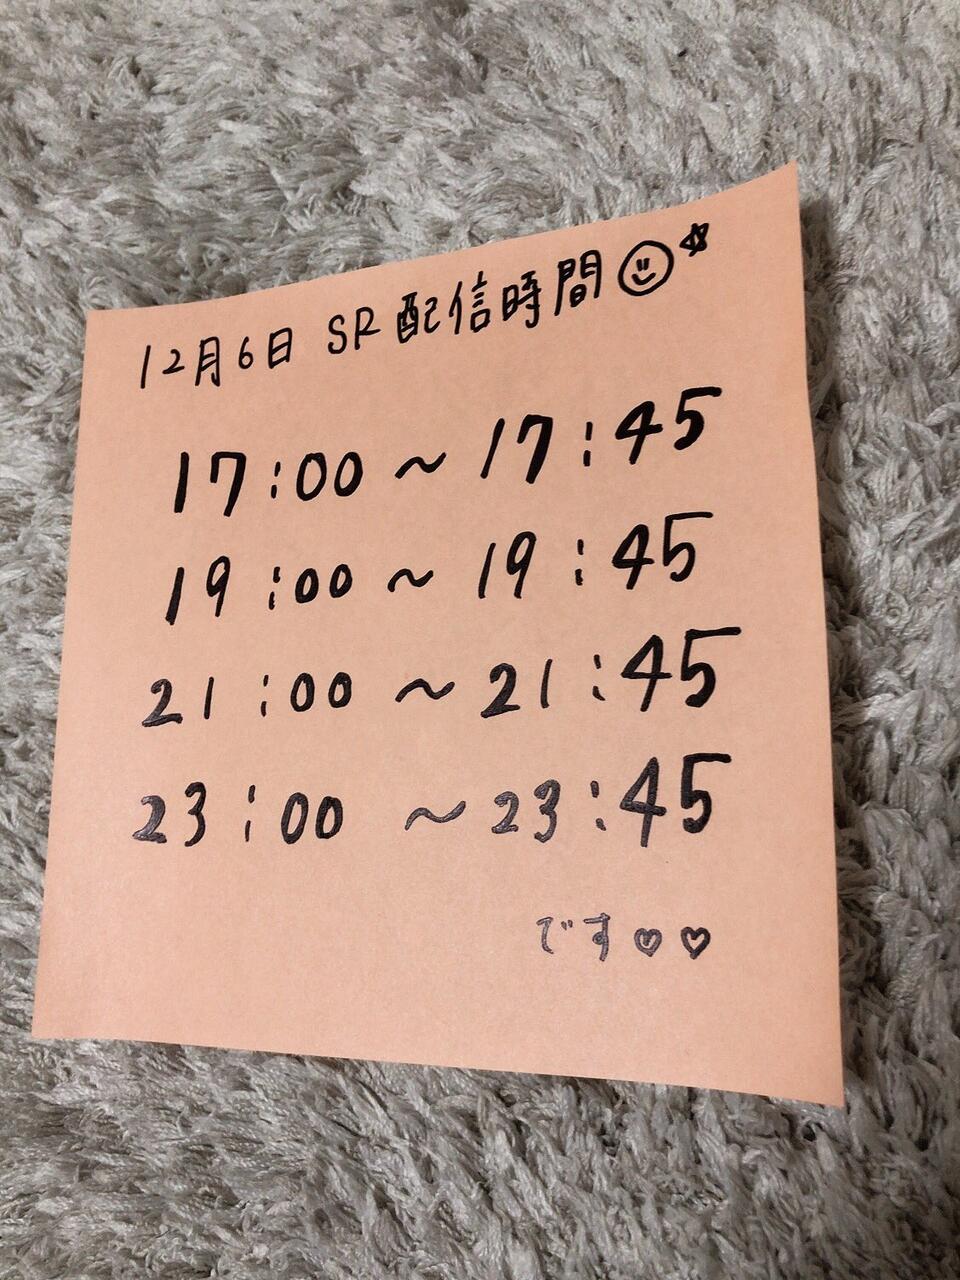 12月6日 SR配信時間
17:00〜17:45
19:00〜19:45
21:00〜21:45
23:00〜23:45
です♡♡